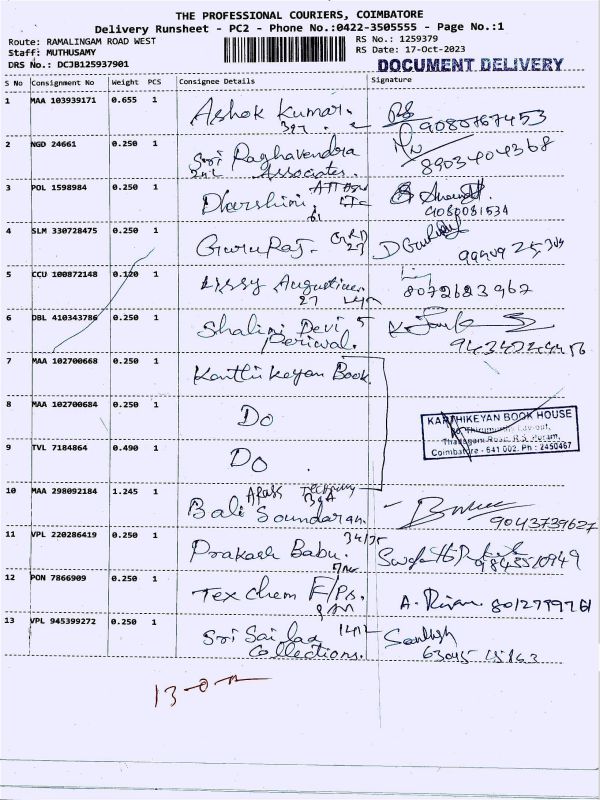 THE PROFESSIONAL COURIERS, COIMBATORE
Delivery Runsheet - PC2 - Phone No.:0422-3505555 - Page No.:1
Route: RAMALINGAM ROAD WEST
RS No.: 1259379
Staff: MUTHUSAMY
RS Date: 17-Oct-2023
DRS No.: DCJB125937901
DOCUMENT DELIVERY
S No Consignment No Weight PCS Consignee Details Signature
1 MAA 103939171 0.655 1 Ashok Kumar. 9080767453
2 NGD 24661 0.250 1 Sri Raghavendra
Associates. 8903404368
3 POL 1598984 0.250 1 Dharshini 9080081534
4 SLM 330728475 0.250 1 GuruRaj.
5 CCU 100872148 0.120 1 Lissy Augustine
27 8072623967
6 DBL 410343786 0.250 1 Shalini Devi
Periwal.
7 MAA 102700668 0.250 1 Karthikeyan Book
8 MAA 102700684 0.250 1 Do
KARTHIKEYAN BOOK HOUSE
Thadagam Road, R.S. Puram,
Coimbatore - 641 002. Ph : 2450467
9 TVL 7184864 0.490 1 Do
10 MAA 298092184 1.245 1 Bali Soundaran. 9043739627
11 VPL 220286419 0.250 1 Prakash Babu. 34/35
12 PON 7866909 0.250 1 Tex Chem
13 VPL 945399272 0.250 1 Sri Sai
Collections.